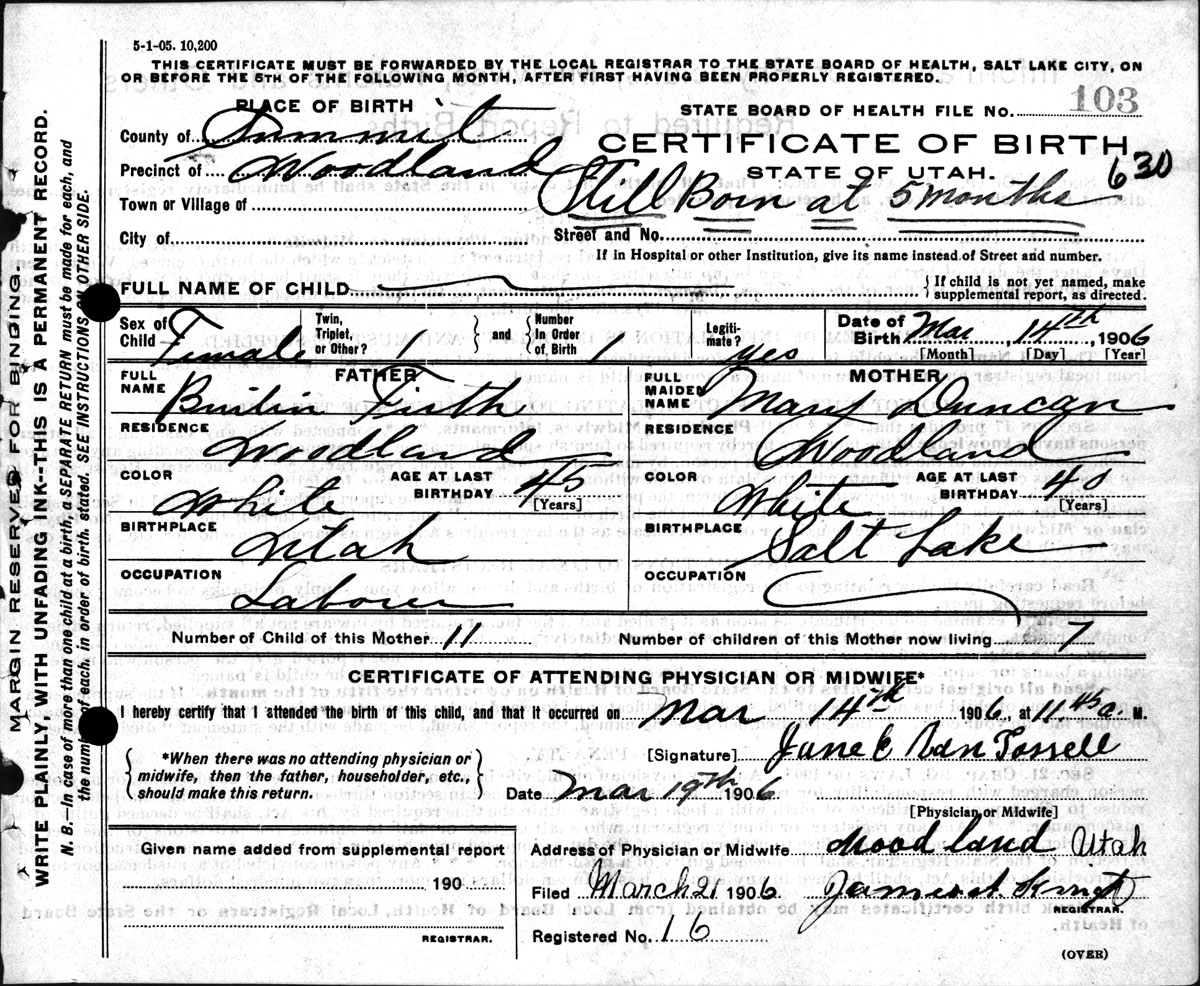 5-1-05. 10,200
THIS CERTIFICATE MUST BE FORWARDED BY THE LOCAL REGISTRAR TO THE STATE BOARD OF HEALTH, SALT LAKE CITY, ON
OR BEFORE THE 5TH OF THE FOLLOWING MONTH, AFTER FIRST HAVING BEEN PROPERLY REGISTERED.
PLACE OF BIRTH
STATE BOARD OF HEALTH FILE No. 103
County of Summit
CERTIFICATE OF BIRTH
Precinct of Woodland
STATE OF UTAH. 630
Town or Village of
Still Born at 5 months
City of
Street and No.
If in Hospital or other Institution, give its name instead of Street and number.
FULL NAME OF CHILD
{ If child is not yet named, make supplemental report, as directed.
Sex of Child Female
Twin, Triplet, or Other? 1 } and { Number In Order of Birth 1
Legiti-mate? yes
Date of Birth Mar 14th, 1906
[Month] [Day] [Year]
FATHER
MOTHER
FULL NAME Firth
FULL MAIDEN NAME Mary Duncan
RESIDENCE Woodland
RESIDENCE Woodland
COLOR White
AGE AT LAST BIRTHDAY 45 [Years]
COLOR White
AGE AT LAST BIRTHDAY 40 [Years]
BIRTHPLACE Utah
BIRTHPLACE Salt Lake
OCCUPATION Laborer
OCCUPATION
Number of Child of this Mother 11
Number of children of this Mother now living 7
CERTIFICATE OF ATTENDING PHYSICIAN OR MIDWIFE*
I hereby certify that I attended the birth of this child, and that it occurred on Mar 14th 1906, at 11.45 a. M.
{ *When there was no attending physician or midwife, then the father, householder, etc., should make this return. }
[Signature] Jane E Van Tassell
Date Mar 19th 1906
[Physician or Midwife]
Given name added from supplemental report
Address of Physician or Midwife Woodland Utah
190
Filed March 21 1906 James A. Knight
REGISTRAR.
REGISTRAR.
Registered No. 16
(OVER)
MARGIN RESERVED FOR BINDING.
WRITE PLAINLY, WITH UNFADING INK--THIS IS A PERMANENT RECORD.
N. B.—In case of more than one child at a birth, a SEPARATE RETURN must be made for each, and
the number of each, in order of birth, stated. SEE INSTRUCTIONS ON OTHER SIDE.